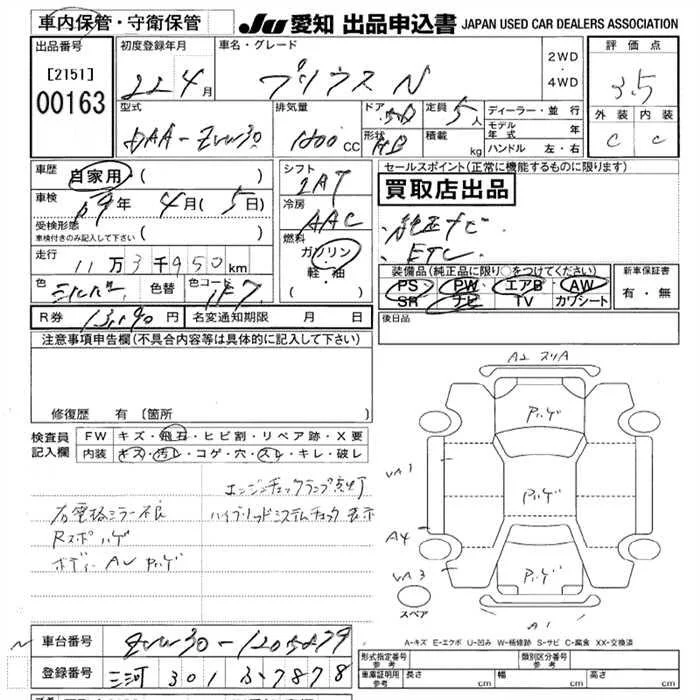 車内保管・守衛保管
JU 愛知 出品申込書 JAPAN USED CAR DEALERS ASSOCIATION
出品番号
[2151]
00163
初度登録年月
22 4月
車名・グレード
プリウス N
2WD
・
4WD
評価点
3.5
外装 内装
C C
型式
DAA-ZVW30
排気量
1800 CC
ドア 5D
形状 HB
定員 5人
積載 kg
ディーラー・並行
モデル年式 年
ハンドル 左・右
車歴 自家用 ( )
車検 年 4月(5日)
受検形態
車検付きのみ記入して下さい ( )
走行
11万3千950km
色 シルバー 色替 色コード 1F7
シフト
2AT
冷房
AAC
燃料
ガソリン
・
軽・油
セールスポイント(正常に機能するものに限ります)
買取店出品
・純正ナビ
・ETC
装備品(純正品に限り○をつけてください)
PS PW エアB AW
SR ナビ TV カワシート
新車保証書
有・無
R券 13,190円 名変通知期限 月 日
後日品
注意事項申告欄(不具合内容等は具体的に記入して下さい)
修復歴 有(箇所
検査員
記入欄
FW キズ・飛石・ヒビ割・リペア跡・X要
内装 キズ・汚レ・コゲ・穴・スレ・キレ・破レ
エンジンチェックランプ点灯
ハイブリッドシステムチェック表示
右電格ミラー不良
Rスポハゲ
ボディーAU ハゲ
A2 スリA
ハゲ
UA1
ハゲ
A4
UA3
ハゲ
A1
スペア
A-キズ E-エクボ U-凹み W-補修跡 S-サビ C-腐食 XX-交換済
車台番号 ZVW30-1205079
登録番号 三河 301 す7878
形式指定番号
参考
類別区分番号
参考
車庫証明用
参考
長さ cm 幅 cm 高さ cm